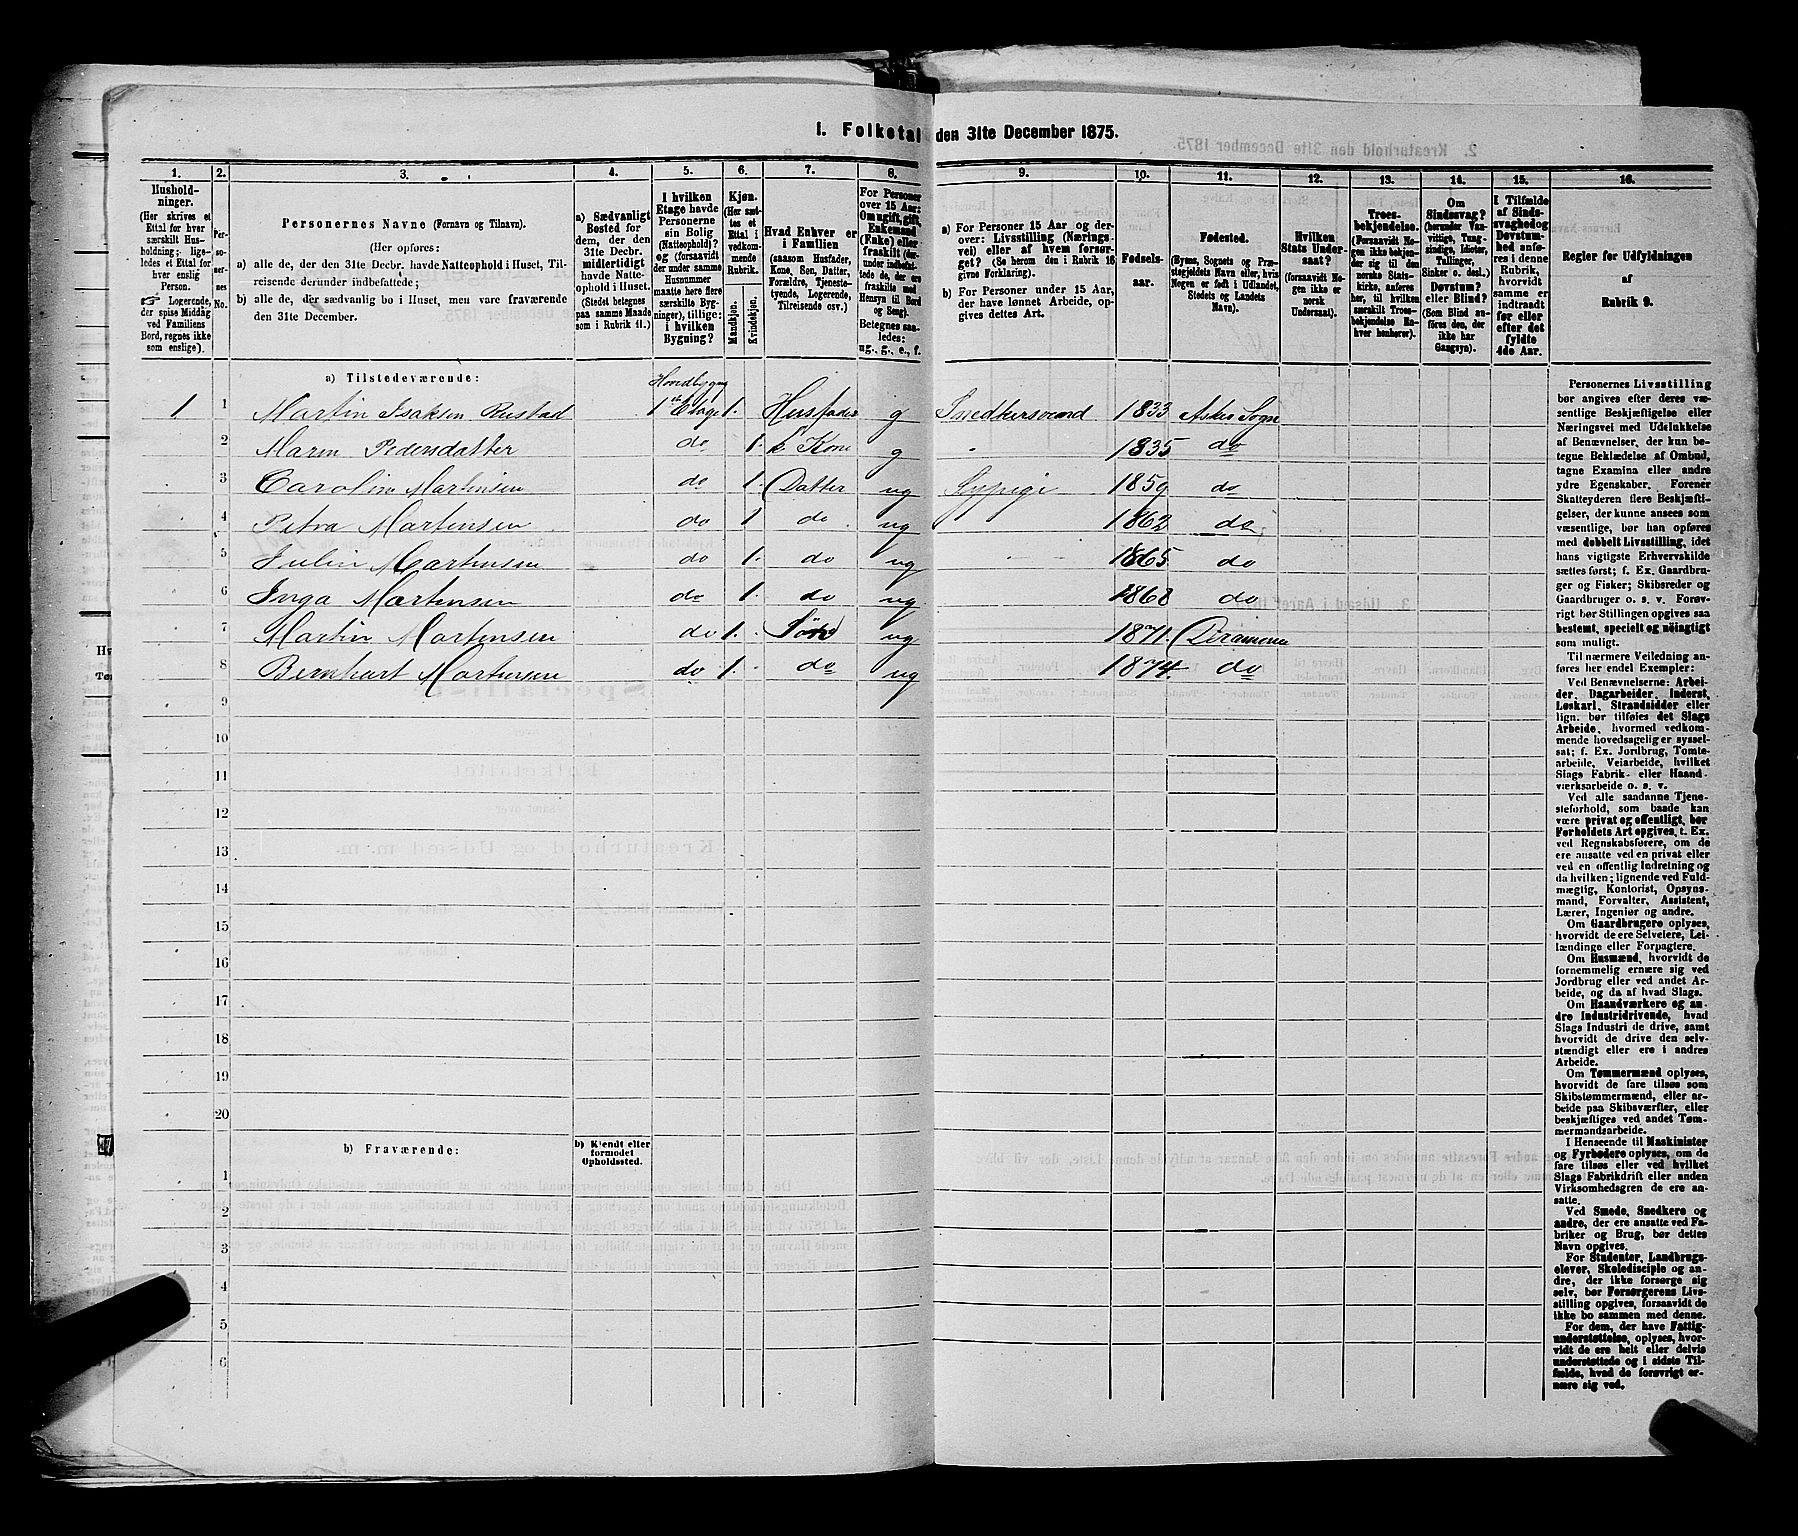 1. Folketal den 31te December 1875.
1. 2. 3. 4. 5. 6. 7. 8. 9. 10. 11. 12. 13. 14. 15. 16.
Hushold-
ninger.
(Her skrives et
Ettal for hver
særskilt Hus-
holdning; lige-
ledes et Ettal for
hver enslig
Person.
☞ Logerende,
der spise Middag
ved Familiens
Bord, regnes ikke
som enslige).
Per-
so-
ner-
nes
No.
Personernes Navne (Fornavn og Tilnavn).
(Her opføres:
a) alle de, der den 31te Decbr. havde Natteophold i Huset, Til-
reisende derunder indbefattede;
b) alle de, der sædvanlig bo i Huset, men vare fraværende
den 31te December.
a) Sædvanligt
Bosted for
dem, der den
31te Decbr.
midlertidigt
havde Natte-
ophold i Huset.
(Stedet betegnes
paa samme Maade
som i Rubrik 11.)
I hvilken
Etage havde
Personerne
sin Bolig
(Natteophold)?
og (forsaavidt
der under samme
Husnummer
maatte høre flere
særskilte Byg-
ninger), tillige:
i hvilken
Bygning?
Kjøn.
(Her sæt-
tes et
Ettal i
vedkom-
mende
Rubrik.
Mandkjøn.
Kvindekjøn.
Hvad Enhver er
i Familien
(saasom Husfader,
Kone, Søn, Datter,
Forældre, Tjeneste-
tyende, Logerende,
Tilreisende osv.)
For Personer
over 15 Aar:
Om ugift, gift,
Enkemand
(Enke) eller
fraskilt (der-
under indbefat-
tede de, der ere
fraskilte med
Hensyn til Bord
og Seng).
Betegnes saa-
ledes:
ug., g., e., f.
a) For Personer 15 Aar og der-
over: Livsstilling (Nærings-
vei) eller af hvem forsør-
get? (Se herom den i Rubrik 16
givne Forklaring).
b) For Personer under 15 Aar,
der have lønnet Arbeide, op-
gives dettes Art.
Fødsels-
aar.
Fødested.
(Byens, Sognets og Præ-
stegjeldets Navn eller, hvis
Nogen er født i Udlandet,
Stedets og Landets
Navn).
Hvilken
Stats Under-
saat?
(forsaavidt No-
gen ikke er
norsk
Undersaat).
Troes-
bekjendelse.
(Forsaavidt No-
gen ikke bekjen-
der sig til den
norske Stats-
kirke, anføres
her, til hvilken
særskilt Troes-
bekjendelse En-
hver henhører).
Om
Sindssvag?
(herunder Van-
vittige, Tung-
sindige, Idioter,
Tullinger,
Sinker o. desl.)
Døvstum?
eller Blind?
(Som Blind an-
føres den, der
ikke har
Gangsyn).
I Tilfælde
af Sinds-
svaghed og
Døvstum-
hed anfø-
res i denne
Rubrik,
hvorvidt
samme er
indtraadt
før eller
efter det
fyldte
4de Aar.
Regler for Udfyldningen
af
Rubrik 9.
a) Tilstedeværende:
Hovedbygng
1 1 Martin Isaksen Rustad 1ste Etage 1. Husfader g Snedkersvend 1833 Asker Sogn
2 Maren Pedersdatter do 1. Kone g 1835 do
3 Caroline Martinsen do 1. Datter ug Sypige 1859 do
4 Petra Martensen do 1 do ug 1862 do
5 Julie Martensen do 1. do ug 1865 do
6 Inga Martensen do 1. do ug 1868 do
7 Martin Martensen do 1. Søn ug 1871. Drammen
8 Bernhart Martensen do 1. do ug 1874. do
9
10
11
12
13
14
15
16
17
18
19
20
b) Fraværende:
b) Kjendt eller
formodet
Opholdssted.
1
2
3
4
5
6
Personernes Livsstilling
bør angives efter deres væ-
sentlige Beskjæftigelse eller
Næringsvei med Udelukkelse
af Benævnelser, der kun be-
tegne Beklædelse af Ombud,
tagne Examina eller andre
ydre Egenskaber. Forener
Skatteyderen flere Beskjæfti-
gelser, der kunne ansees som
væsentlige, bør han opføres
med dobbelt Livsstilling, idet
hans vigtigste Erhvervskilde
sættes først; f. Ex. Gaardbru-
ger og Fisker; Skibsreder og
Gaardbruger o. s. v. Forøv-
rigt bør Stillingen opgives saa
bestemt, specielt og nøiagtigt
som muligt.
Til nærmere Veiledning an-
føres her endel Exempler:
Ved Benævnelserne: Arbei-
der, Dagarbeider, Inderst,
Løskarl, Strandsidder eller
lign. bør tilføies det Slags
Arbeide, hvormed vedkom-
mende hovedsagelig er syssel-
sat; f. Ex. Jordbrug, Tomte-
arbeide, Veiarbeide, hvilket
Slags Fabrik- eller Haand-
værksarbeide o. s. v.
Ved alle saadanne Tjene-
steforhold, som baade kan
være privat og offentligt, bør
Forholdets Art opgives, t. Ex.
ved Regnskabsførere, om de
ere ansatte ved en privat eller
ved en offentlig Indretning og
da hvilken; lignende ved Fuld-
mægtig, Kontorist, Opsyns-
mand, Forvalter, Assistent,
Lærer, Ingeniør og andre.
Om Gaardbrugere oplyses,
hvorvidt de ere Selveiere, Lei-
lændinge eller Forpagtere.
Om Husmænd, hvorvidt de
fornemmelig ernære sig ved
Jordbrug eller ved andet Ar-
beide, og da af hvad Slags.
Om Haandværkere og an-
dre Industridrivende, hvad
Slags Industri de drive, samt
hvorvidt de drive den selv-
stændigt eller ere i andres
Arbeide.
Om Tømmermænd oplyses,
hvorvidt de fare tilsøs som
Skibstømmermænd, eller ar-
beide paa Skibsværfter, eller
beskjæftiges ved andet Tøm-
mermandsarbeide.
I Henseende til Maskinister
og Fyrbødere oplyses, om de
fare tilsøs eller ved hvilket
Slags Fabrikdrift eller anden
Virksomhedsgren de ere an-
satte.
Ved Smede, Snedkere og
andre, der ere ansatte ved Fa-
briker og Brug, bør dettes
Navn opgives.
For Studenter, Landbrugs-
elever, Skoledisciple og an-
dre, der ikke forsørge sig
selv, bør Forsørgerens Livs-
stilling opgives, forsaavidt de
ikke bo sammen med denne.
For dem, der have Fattig-
understøttelse, oplyses, hvor-
vidt de ere helt eller delvis
understøttede og i sidste Til-
fælde, hvad de forøvrigt er-
nære sig ved.